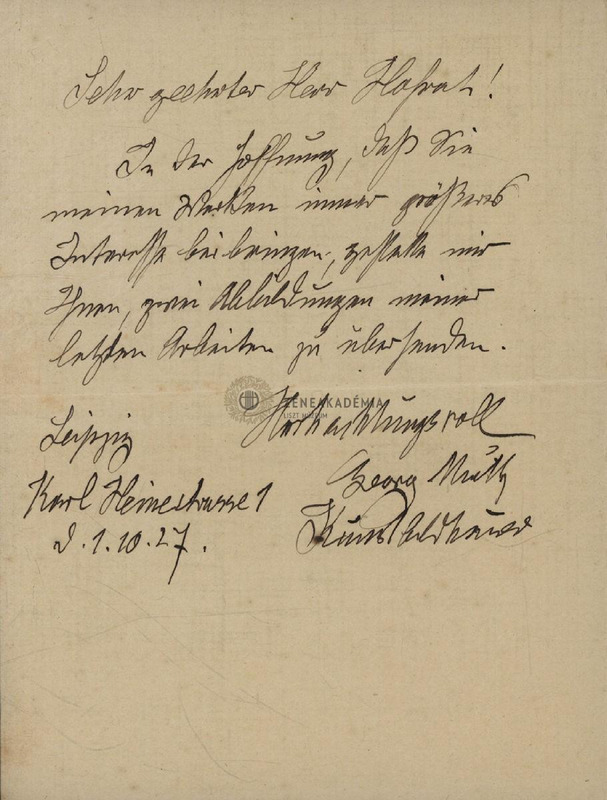 Sehr geehrter Herr Hofrat!
In der Hoffnung, daß Sie
meinen Werken immer größeres
Interesse beibringen, gestatte mir
Ihnen, zwei Abbildungen meiner
letzten Arbeiten zu übersenden.
ZENEAKADÉMIA
LISZT MÚZEUM
Hochachtungsvoll
Leipzig
Georg Muth
Karl Heinestrasse 1
Kunstbildhauer
d. 1.10.27.